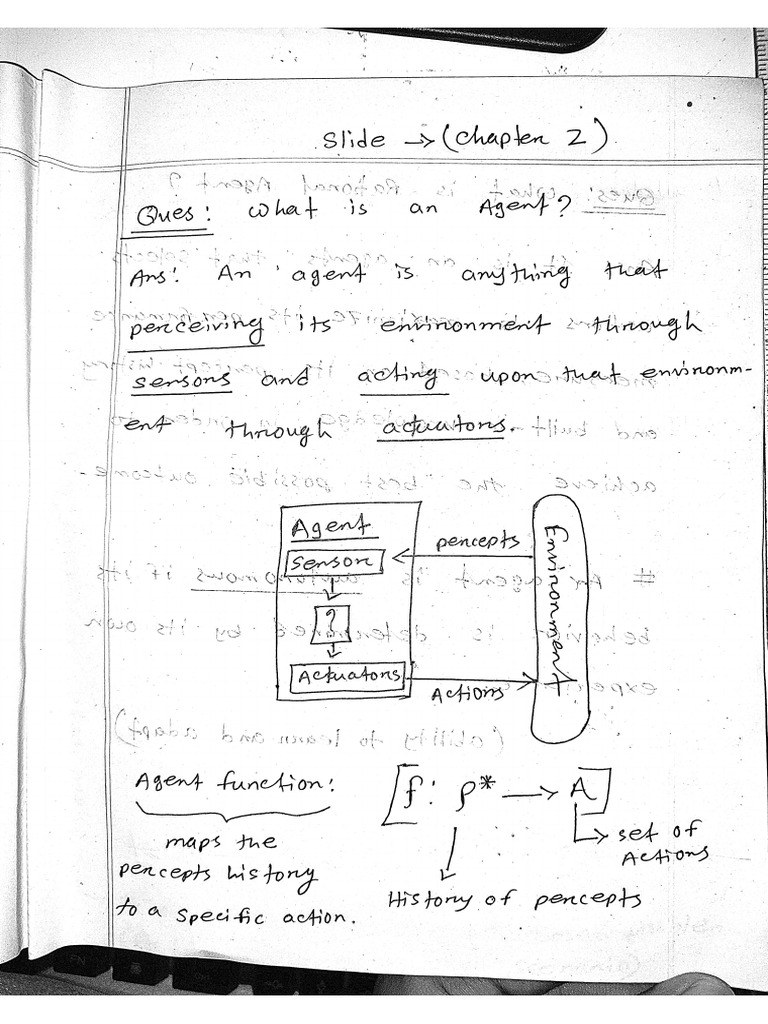 Slide → (Chapter 2)
Ques: What is an Agent?
Ans: An agent is anything that
perceiving its environment through
sensors and acting upon that environm-
ent through actuators.
Agent
Sensor
?
Actuators
percepts
Actions
Environment
Agent function:
maps the
percepts history
to a specific action.
[f: P* → A]
set of
Actions
History of percepts